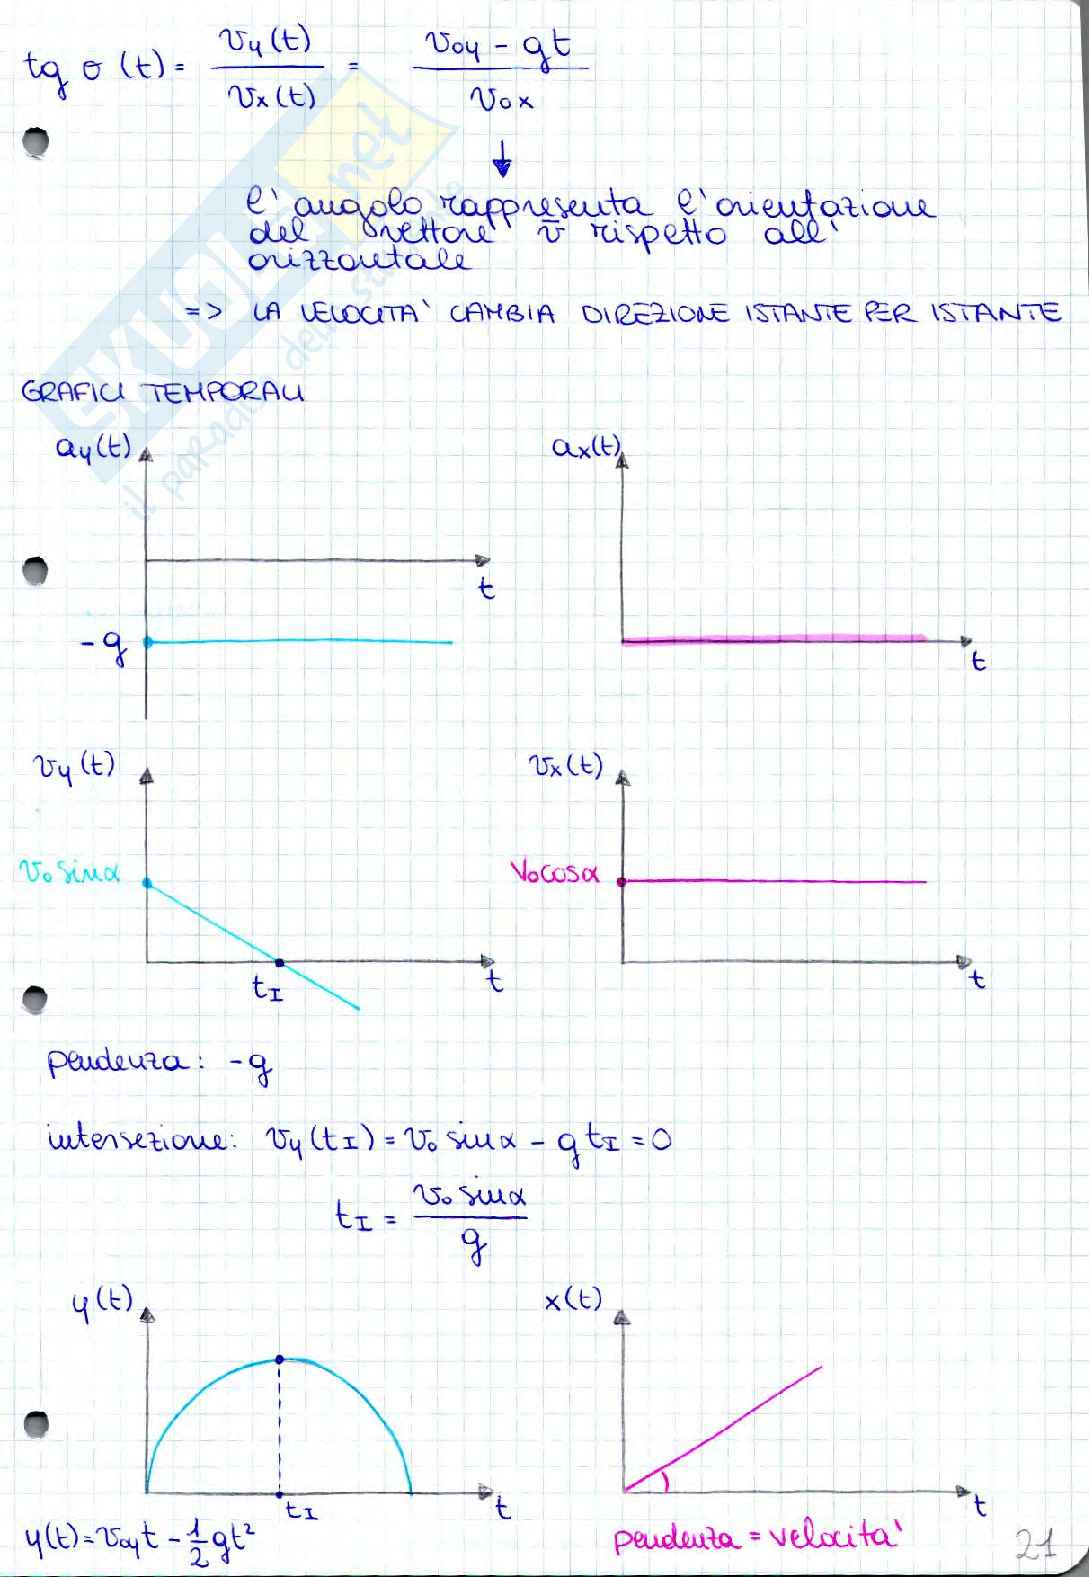 tg σ (t) = vy(t) / vx(t) = v0y - gt / v0x
↓
l'angolo rappresenta l'orientazione
del vettore v̄ rispetto all'
orizzontale
=> LA VELOCITA' CAMBIA DIREZIONE ISTANTE PER ISTANTE
SKUOLA.net
il paradiso dello studente
GRAFICI TEMPORALI
ay(t)
t
-g
ax(t)
t
vy(t)
v0 sinα
tI
t
vx(t)
v0cosα
t
pendenza: -g
intersezione: vy(tI) = v0 sinα - g tI = 0
tI = v0 sinα / g
y(t)
tI
t
y(t) = v0y t - 1/2 gt²
x(t)
t
pendenza = velocita'
21